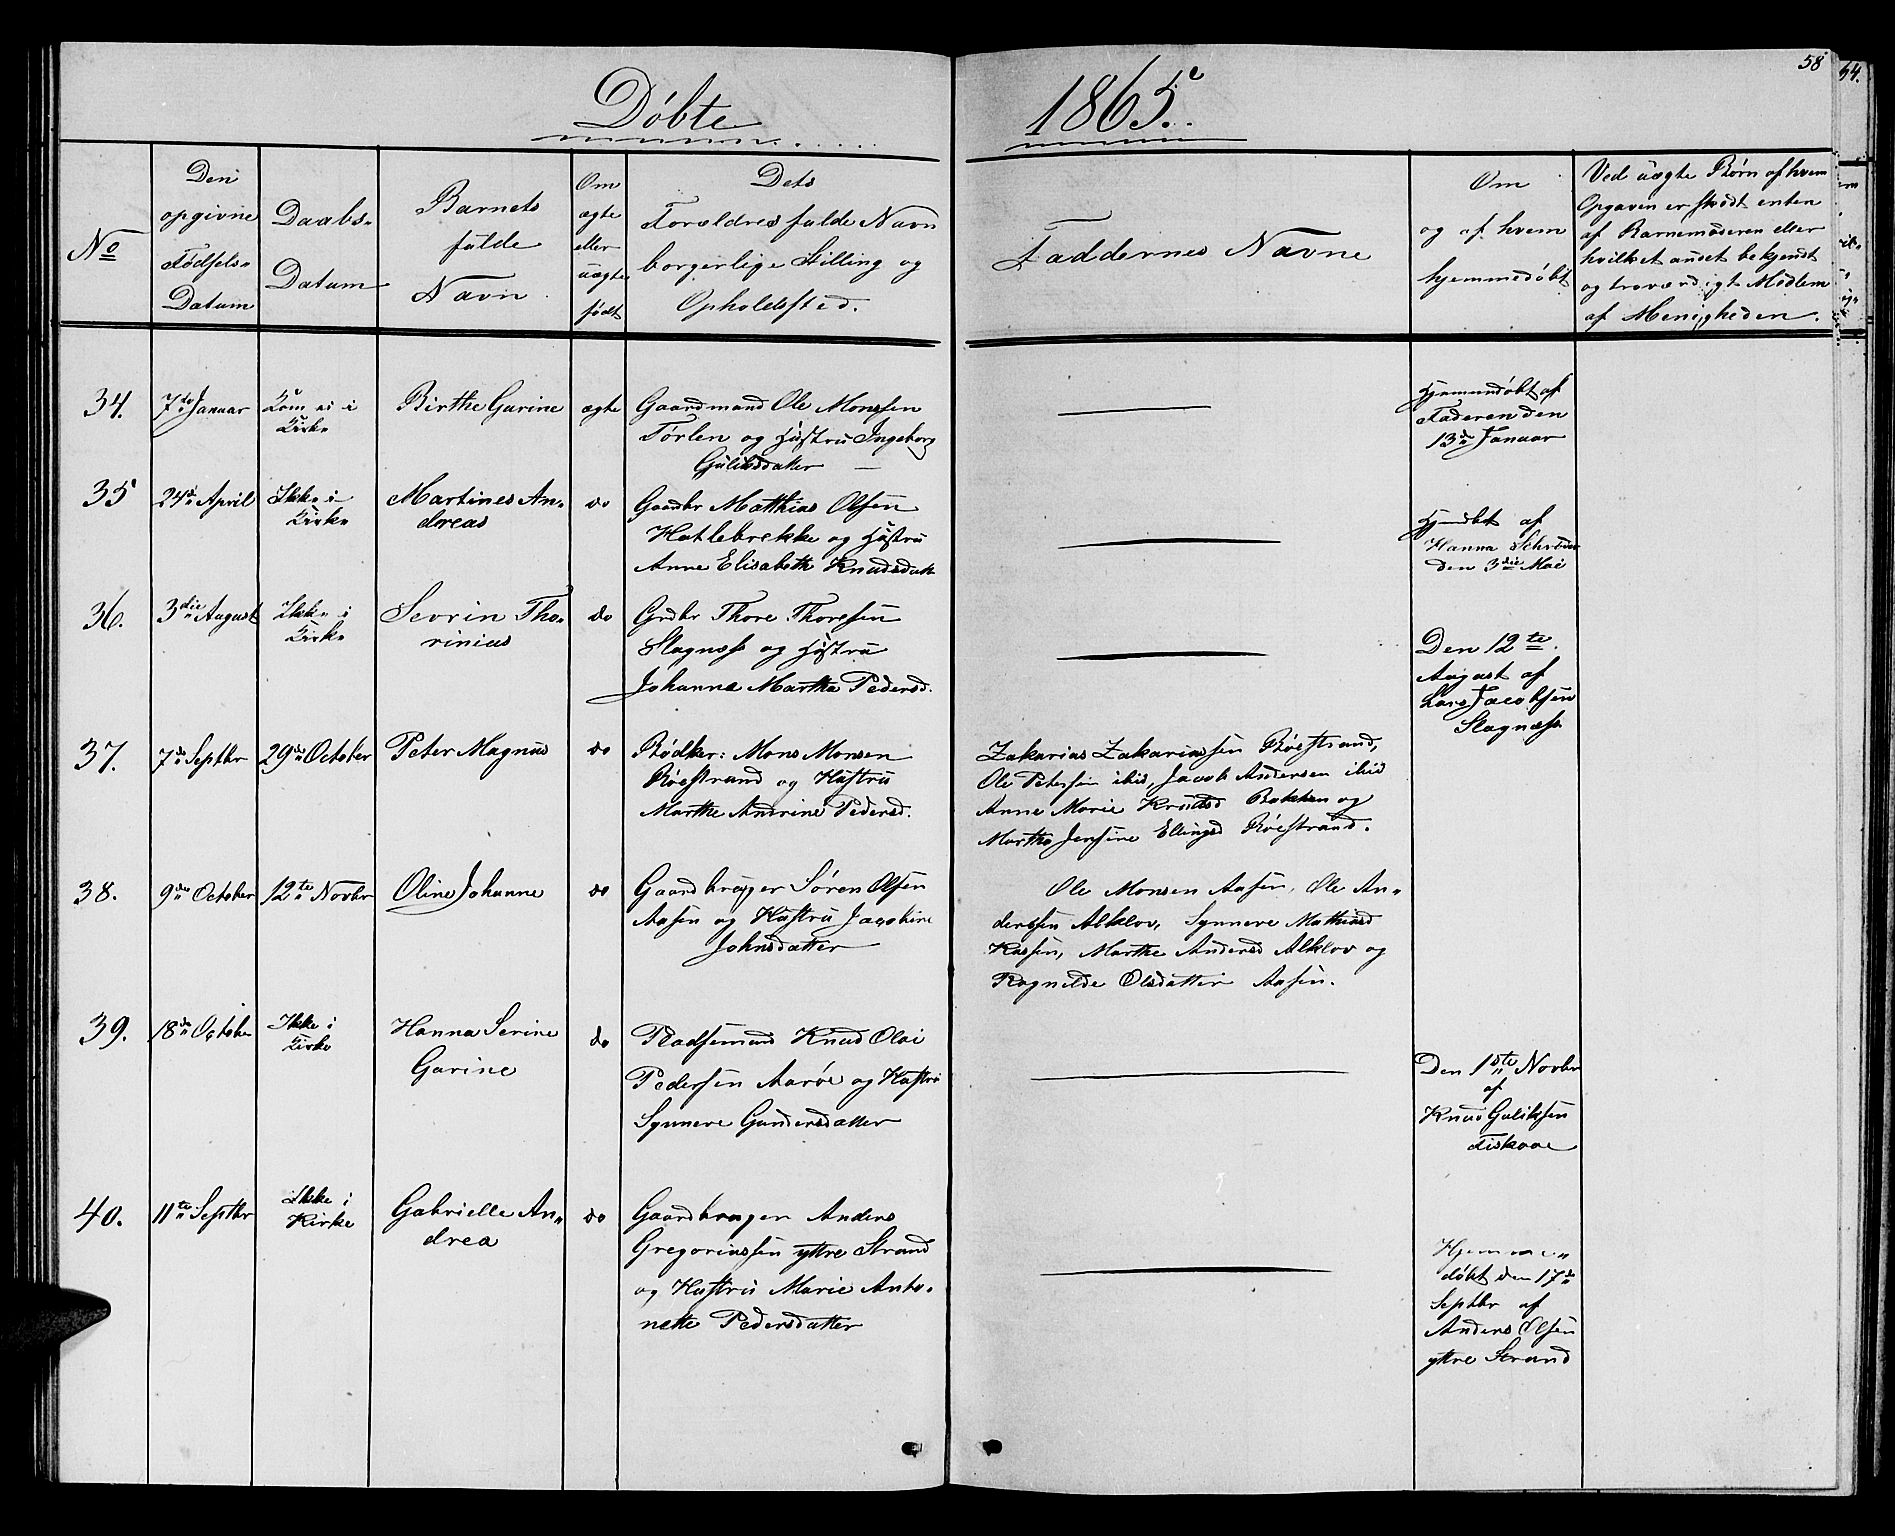 58
54.
Døbte
1865.
No
Den opgivne Fødsels-Datum
Daabs-Datum
Barnets fulde Navn
Om ægte eller uægte født
Dets Forældres fulde Navn borgerlige Stilling og Opholdssted.
Faddernes Navne
Om og af hvem hjemmedøbt
Ved uægte Børn af hvem Opgaven er skedt enten af Barnemoderen eller hvilket andet bekjendt og troværdigt Medlem af Menigheden.
34.
7de Januar
Kom ei i
Kirke
Birthe Gurine
ægte
Gaardmand Ole Monssen
Tørlen og Hustru Ingeborg
Guliksdatter
Hjemmedøbt af
Faderen den
13de Januar
35
24de April
Ikke i
Kirke
Martines An-
dreas
do
Gaardbr Matthias Olsen
Hatlebrekke og Hustru
Anne Elisabeth Knudsdatt
Hjmdbt af
Hanna Schrøder
den 3die Mai
36.
3die August
Ikke i
Kirke
Sevrin Tho-
rinius
do
Grdbr Thore Thoresen
Slagnæss og Hustru
Johanne Marthe Pedersd.
Den 12te
August af
Lars Jacobsen
Slagnæss
37.
7de Septbr
29de October
Peter Magnus
do
Bødker: Mons Monsen
Røestrand og Hustru
Marthe Andrine Pedersd.
Zakarias Zakariassen Røestrand,
Ole Petersen ibid, Jacob Andersen ibid
Anne Marie Knudsd Bakken og
Marthe Jensine Ellingsd Røestrand.
38.
9de October
12te Novbr
Oline Johanne
do
Gaardbruger Søren Olsen
Aasen og Hustru Jacobine
Johnsdatter
Ole Monsen Aasen, Ole An-
derssen Alklov, Synneve Mathiasd
Kassen, Marthe Andersd Alklov og
Ragnilde Olsdatter Aasen.
39.
18de October
Ikke i
Kirke
Hanna Serine
Gurine
do
Pladsemand Knud Olai
Pedersen Aarøe og Hustru
Synneve Gundersdatter
Den 1ste Novbr
af
Knud Guliksen
Fiskaae
40.
11te Septbr
Ikke i
Kirke
Gabrielle An-
drea
do
Gaardbruger Anders
Gregoriussen yttre Strand
og Hustru Marie Anto-
nette Pedersdatter
Hjemme-
døbt den 17de
Septbr af
Anders Olsen
yttre Strand